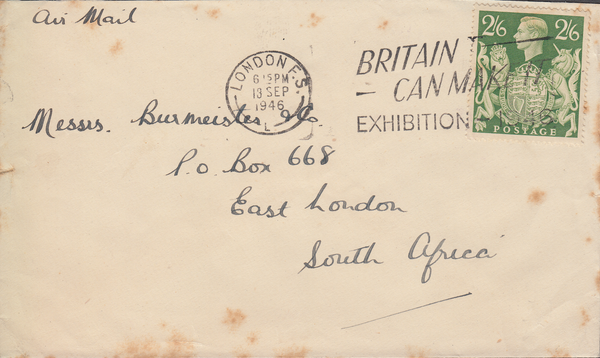 Air Mail
LONDON F.S.
6 15 PM
18 SEP
1946
L
BRITAIN
CAN MAKE IT
EXHIBITION
2/6 2/6
POSTAGE
Messrs. Burmeister & Co
P.O Box 668
East London
South Africa